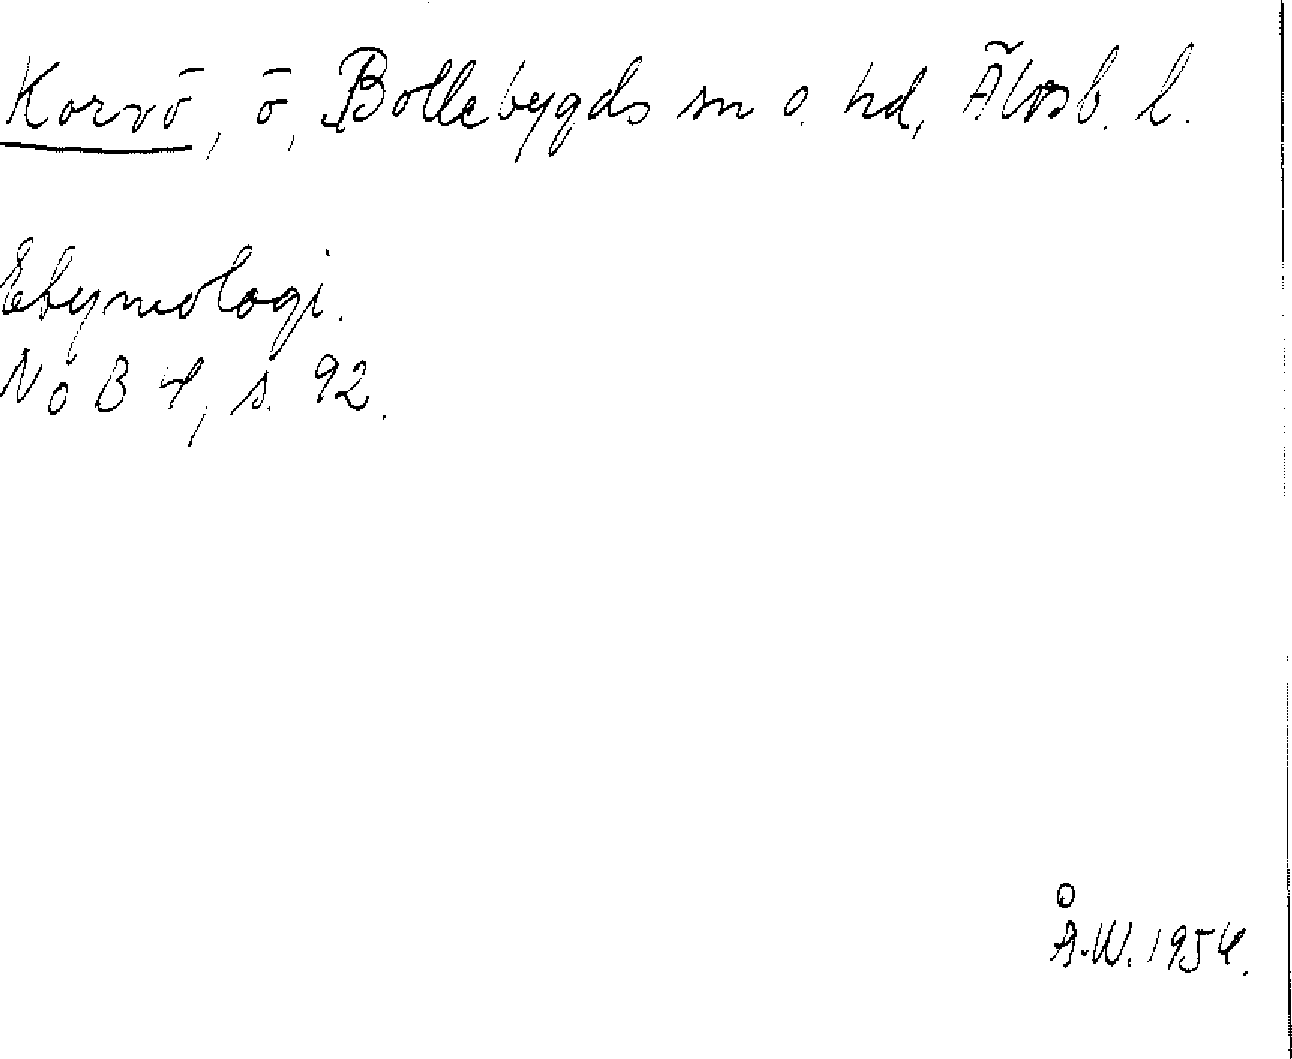 Korvö, ö, Bollebygds sn o. hd, Älvsb. l.
Etymologi.
NoB 4, s. 92.
Å.W. 1954.